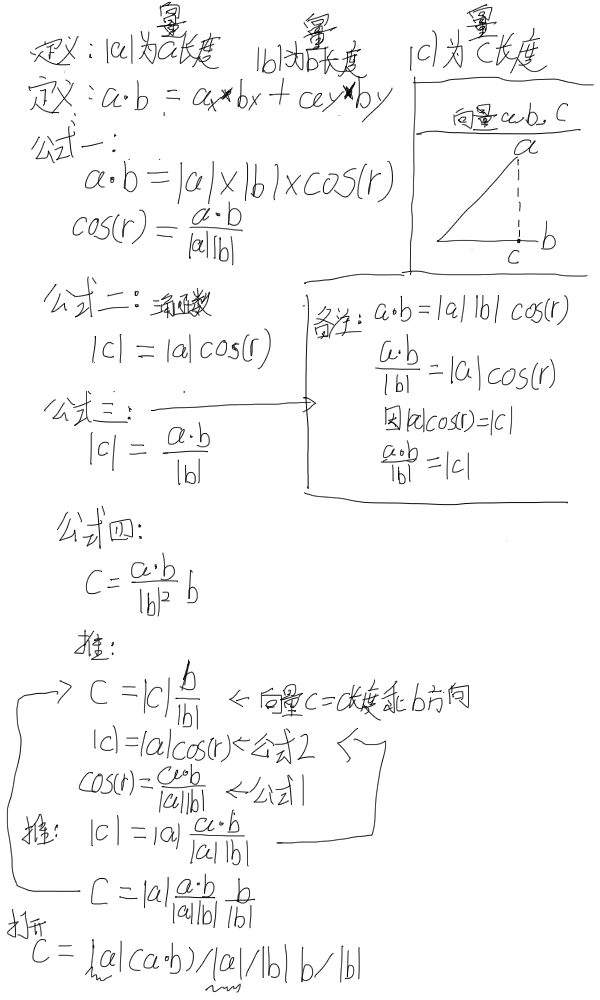 定义：|a|为a向量长度 |b|为b向量长度 |c|为c向量长度
定义：a·b = ax*bx+ay*by
公式一：
a·b=|a|×|b|×cos(r)
cos(r) = a·b/|a||b|
向量a、b、c
a
b
c
公式二：三角函数
|c| = |a|cos(r)
公式三：
|c| = a·b/|b|
备注：a·b=|a||b| cos(r)
a·b/|b| =|a|cos(r)
因|a|cos(r)=|c|
a·b/|b| =|c|
公式四：
C= a·b/|b|² b
推：
C =|c| b/|b| ← 向量c=c长度乘b方向
|c|=|a|cos(r)←公式2
cos(r)= a·b/|a||b| ←公式1
推： |c| =|a| a·b/|a||b|
C =|a| a·b/|a||b| b/|b|
打开
C = |a|(a·b)/|a|/|b| b/|b|